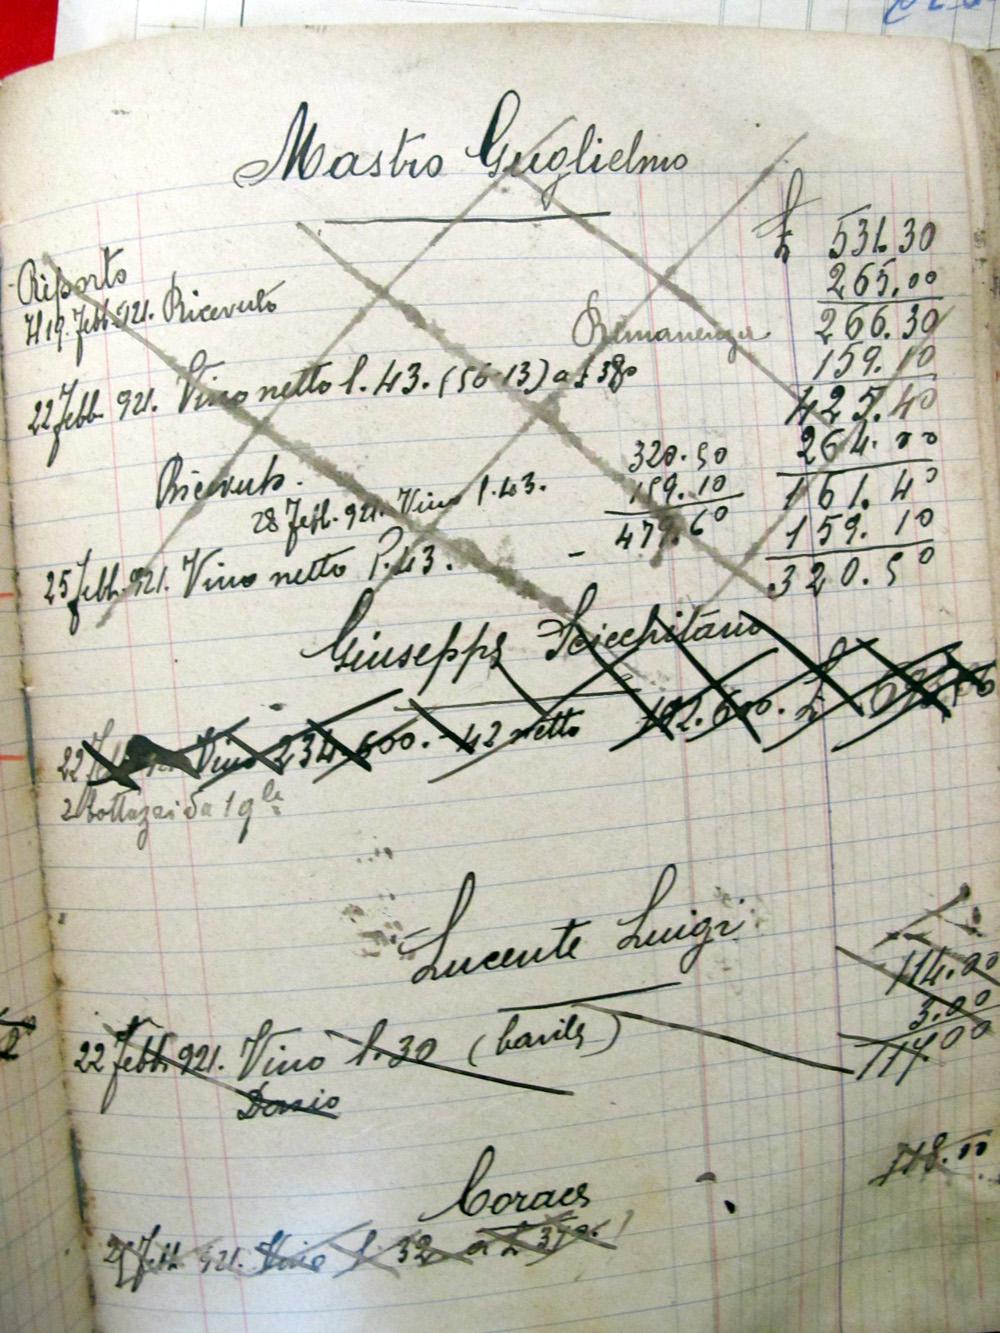 Mastro Guglielmo
Riporto £ 531.30
Il 19. Febb. 921. Ricevuto 265.00
Rimanenza 266.30
22 Febb. 921. Vino netto l. 43. (56-13) a £ 380 159.10
425.40
Ricevuto. 320.50 264.00
28 Febb. 921. Vino l. 43. 159.10 161.40
25 Febb. 921. Vino netto l. 43. - 479.60 159.10
320.50
Giuseppe
22 Vino 234.600. - 42 netto 192.600. £
2 Bottazzi da 1 qle
Lucente Luigi
114.00
22 Febb. 921. Vino l. 30 (barile) 3.00
Dazio 117.00
118.00
Coraes
Febb. 921. Vino l. 32 a £ 370.